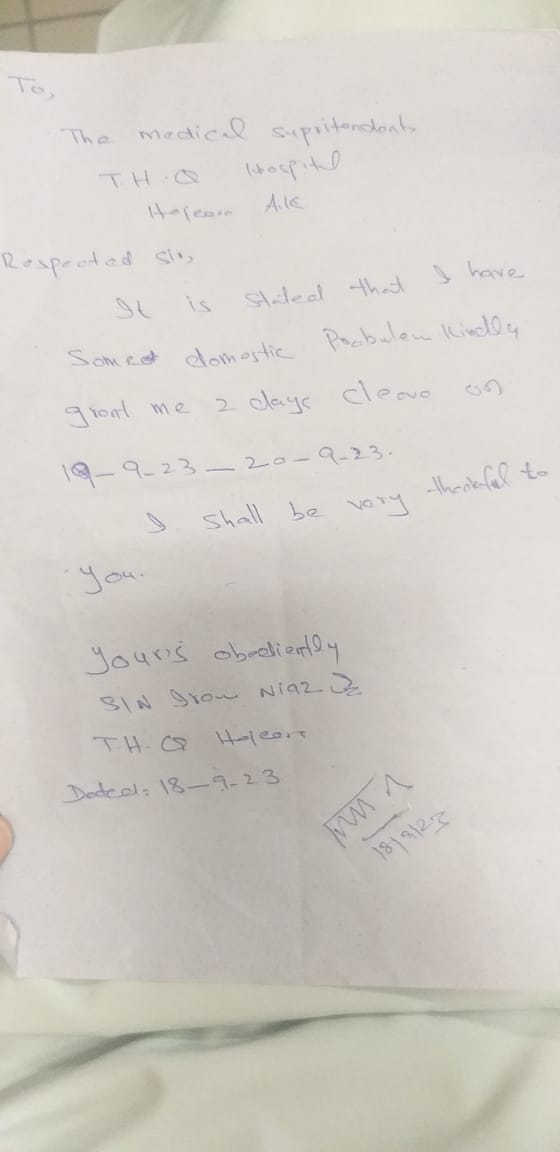 To,
The medical supritendent
T H . Q Hospital
A.K
Respected Sir,
It is stated that I have
Some domestic Probulem Kindly
grant me 2 days cleave on
19-9-23 - 20-9-23.
I shall be very thankful to
you.
your's obediently
S/N Niaz
T.H. Q
Dated: 18-9-23
18/9/23